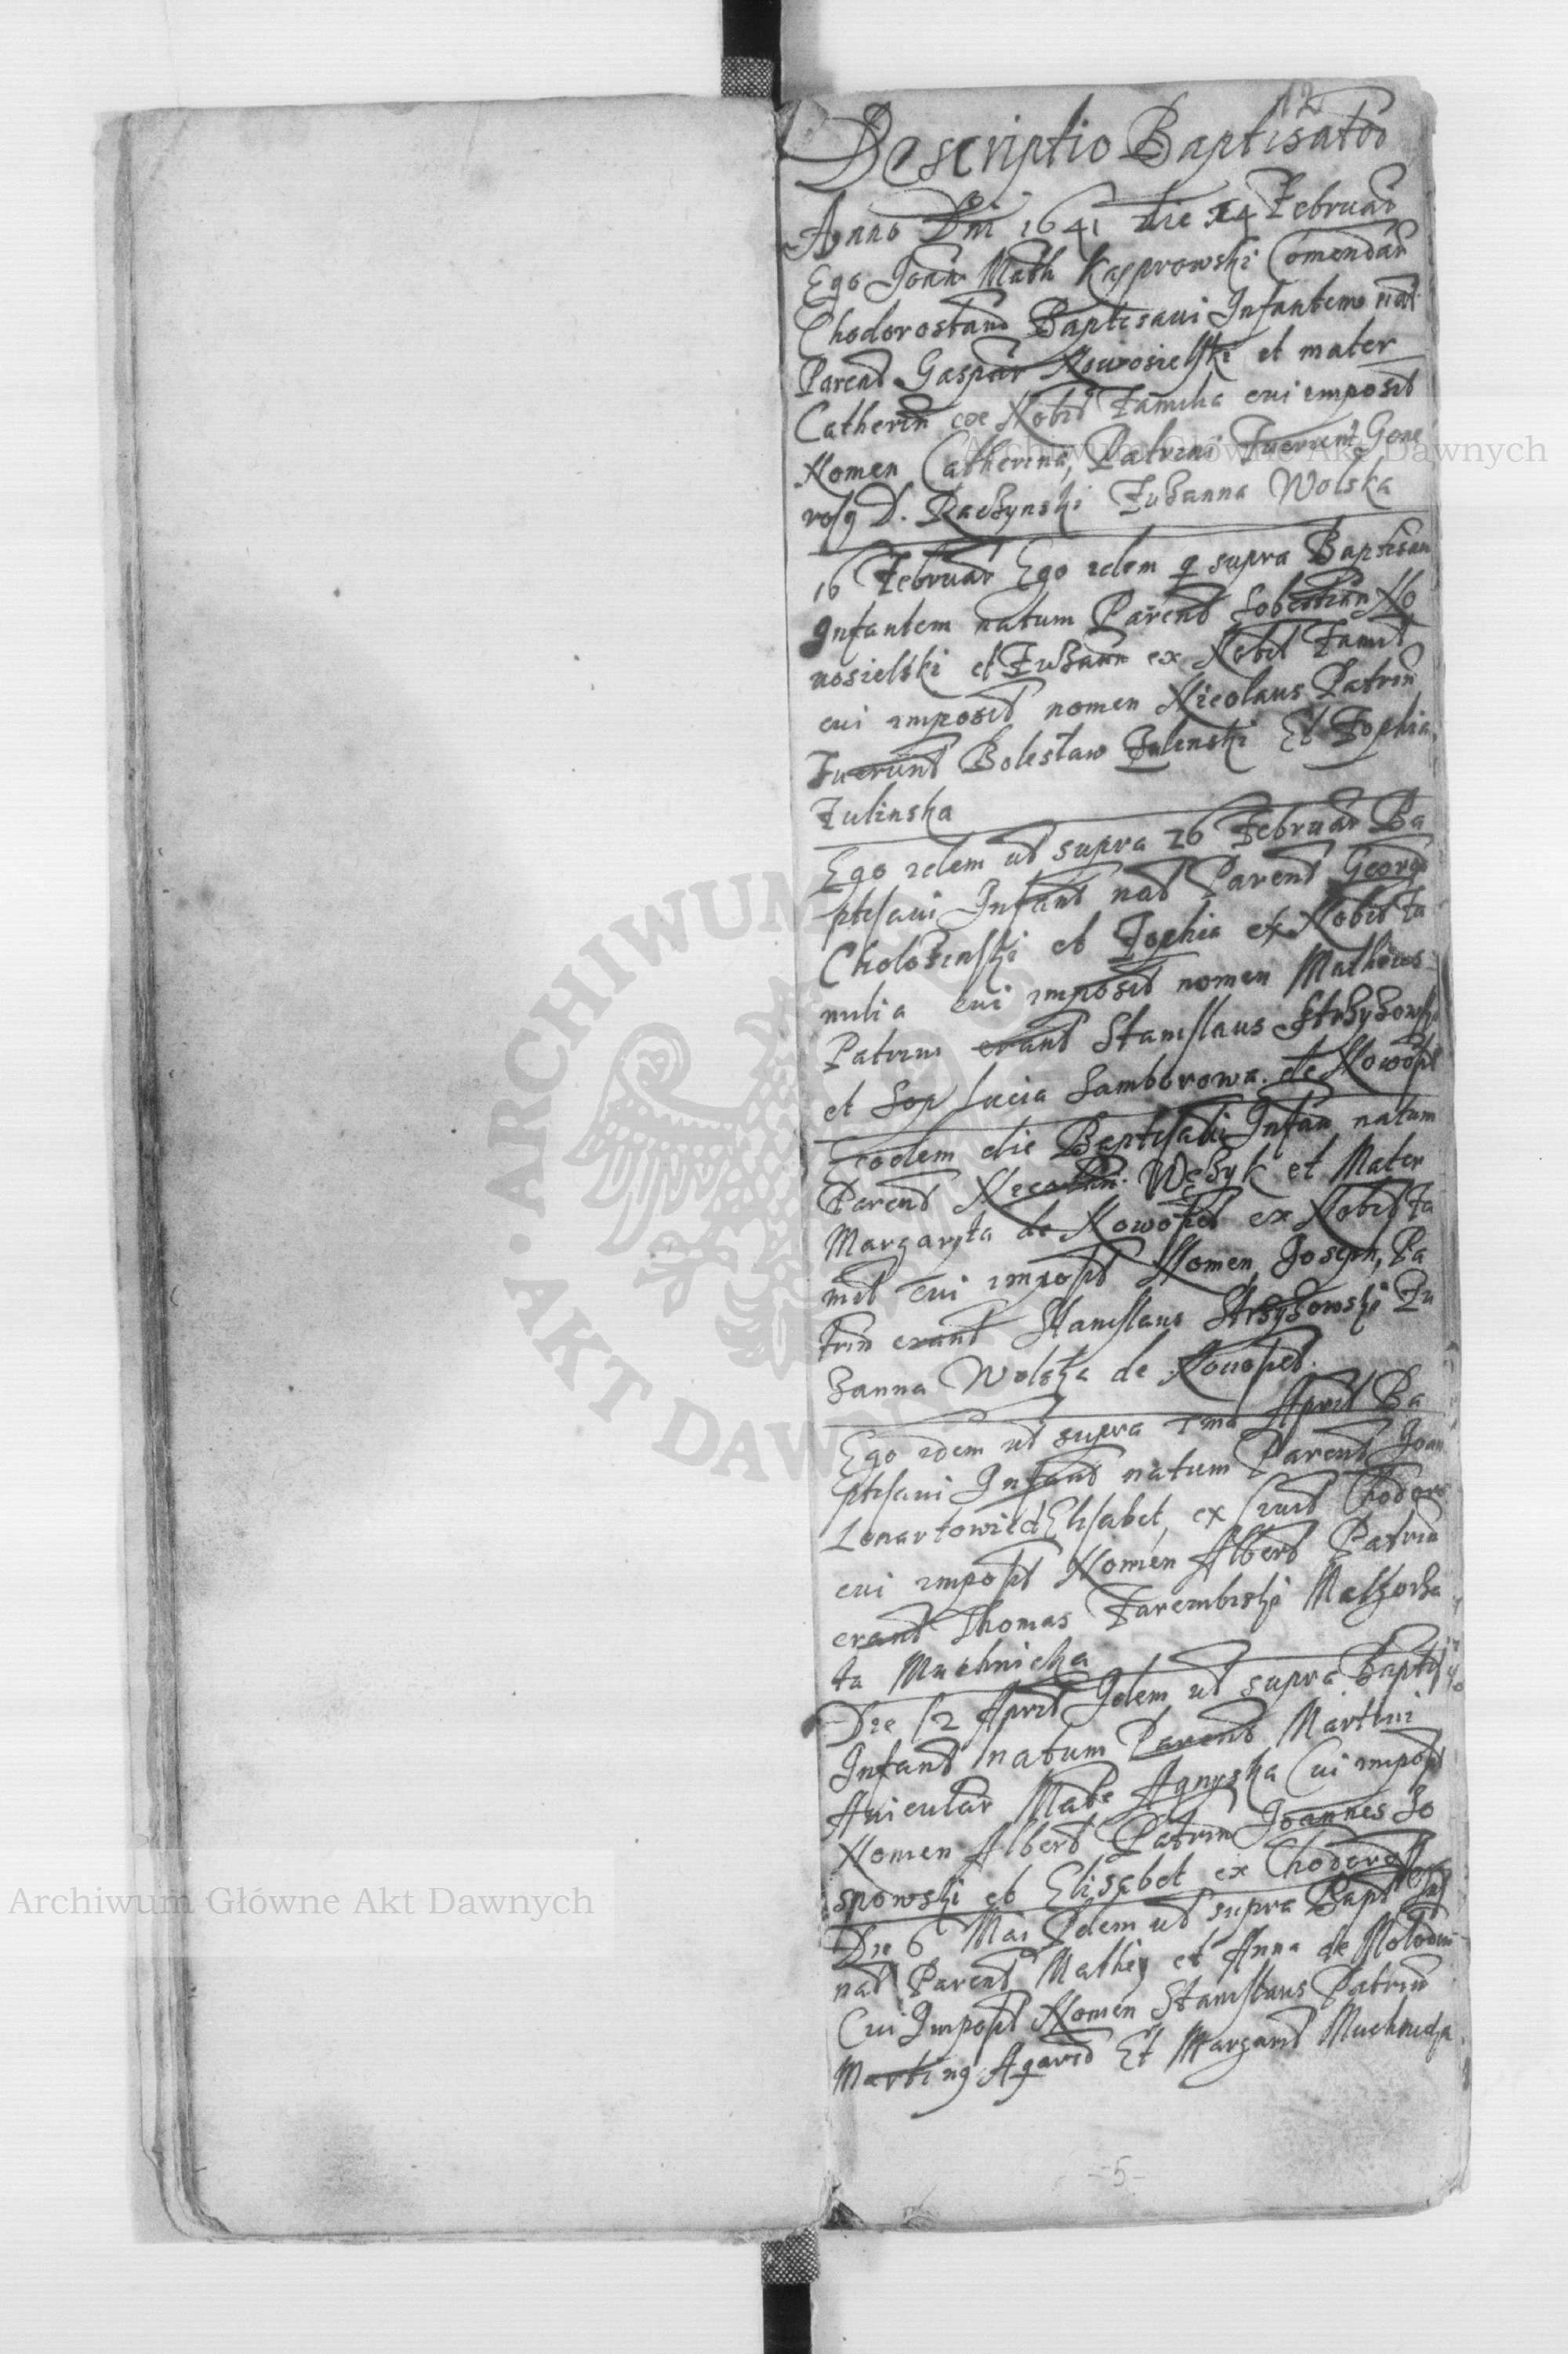 12
Descriptio Baptisator
Anno Dni 1641 die 14 Februar
Ego Joan Math Kasprowski Comendar
Chodorostan Baptisaui Infantem nat
Parent Gaspar Nowosielski et mater
Catherin ex Nobil Familia cui imposit
Nomen Catherina, Patrini Fuerunt Gene
rosq D. Raczynski Zuzanna Wolska
16 Februar Ego idem q supra Baptisau
Infantem natum Parent Sobestian No
uosielski et Zuzann ex Nobil Famil
cui imposit nomen Nicolaus Patrin
Fuerunt Bolestaw Zulinski Et Zophia
Zulinska
Ego idem ut supra 26 Februar Ba
ptisaui Infant nat Parent Georg
Cholozinski et Zophia ex Nobil Fa
milia cui imposit nomen Matheus
Patrini erant Stanislaus Strzyzowski
et Lucia Samborowa de Nowosi
Eodem die Baptisaui Infan natum
Parent Nicolai Wezyk et Mater
Margaryta de Nowosiel ex Nobil Fa
mil cui imposit Nomen Joseph, Pa
trin erant Stanislaus Strzyzowski Zu
zanna Wolska de Nouosiel
Ego idem ut supra 1ma April Ba
ptisaui Infant natum Parent Joan
Lenartowicz Elisabet, ex Ciuit Chodoro
cui imposit Nomen Albert Patrin
erant Thomas Zarembiski Malgorza
ta Muchnicka
Die 12 April Idem ut supra Baptis
Infant natum Parent Martini
Auicular Mate Agnyska Cui imposit
Nomen Albert Patrin Joannes So
spowski et Elisabet ex Chodorost
Die 6 Mai Idem ut supra Bapt Inf
nat Parent Mathey et Anna de Molodow
Cui Imposit Nomen Stanislaus Patrin
Martinq Agarid Et Margarit Muchnicka
-5-
Archiwum Główne Akt Dawnych
Archiwum Główne Akt Dawnych